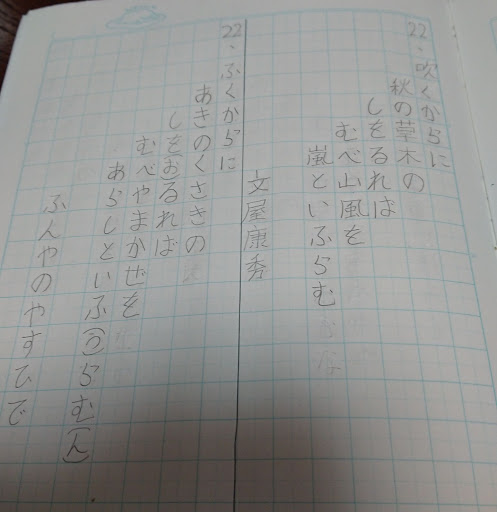 22、吹くからに
秋の草木の
しをるれば
むべ山風を
嵐といふらむ
文屋康秀
22、ふくからに
あきのくさきの
しを(お)るれば
むべやまかぜを
あらしといふ(う)らむ(ん)
ふんやのやすひで